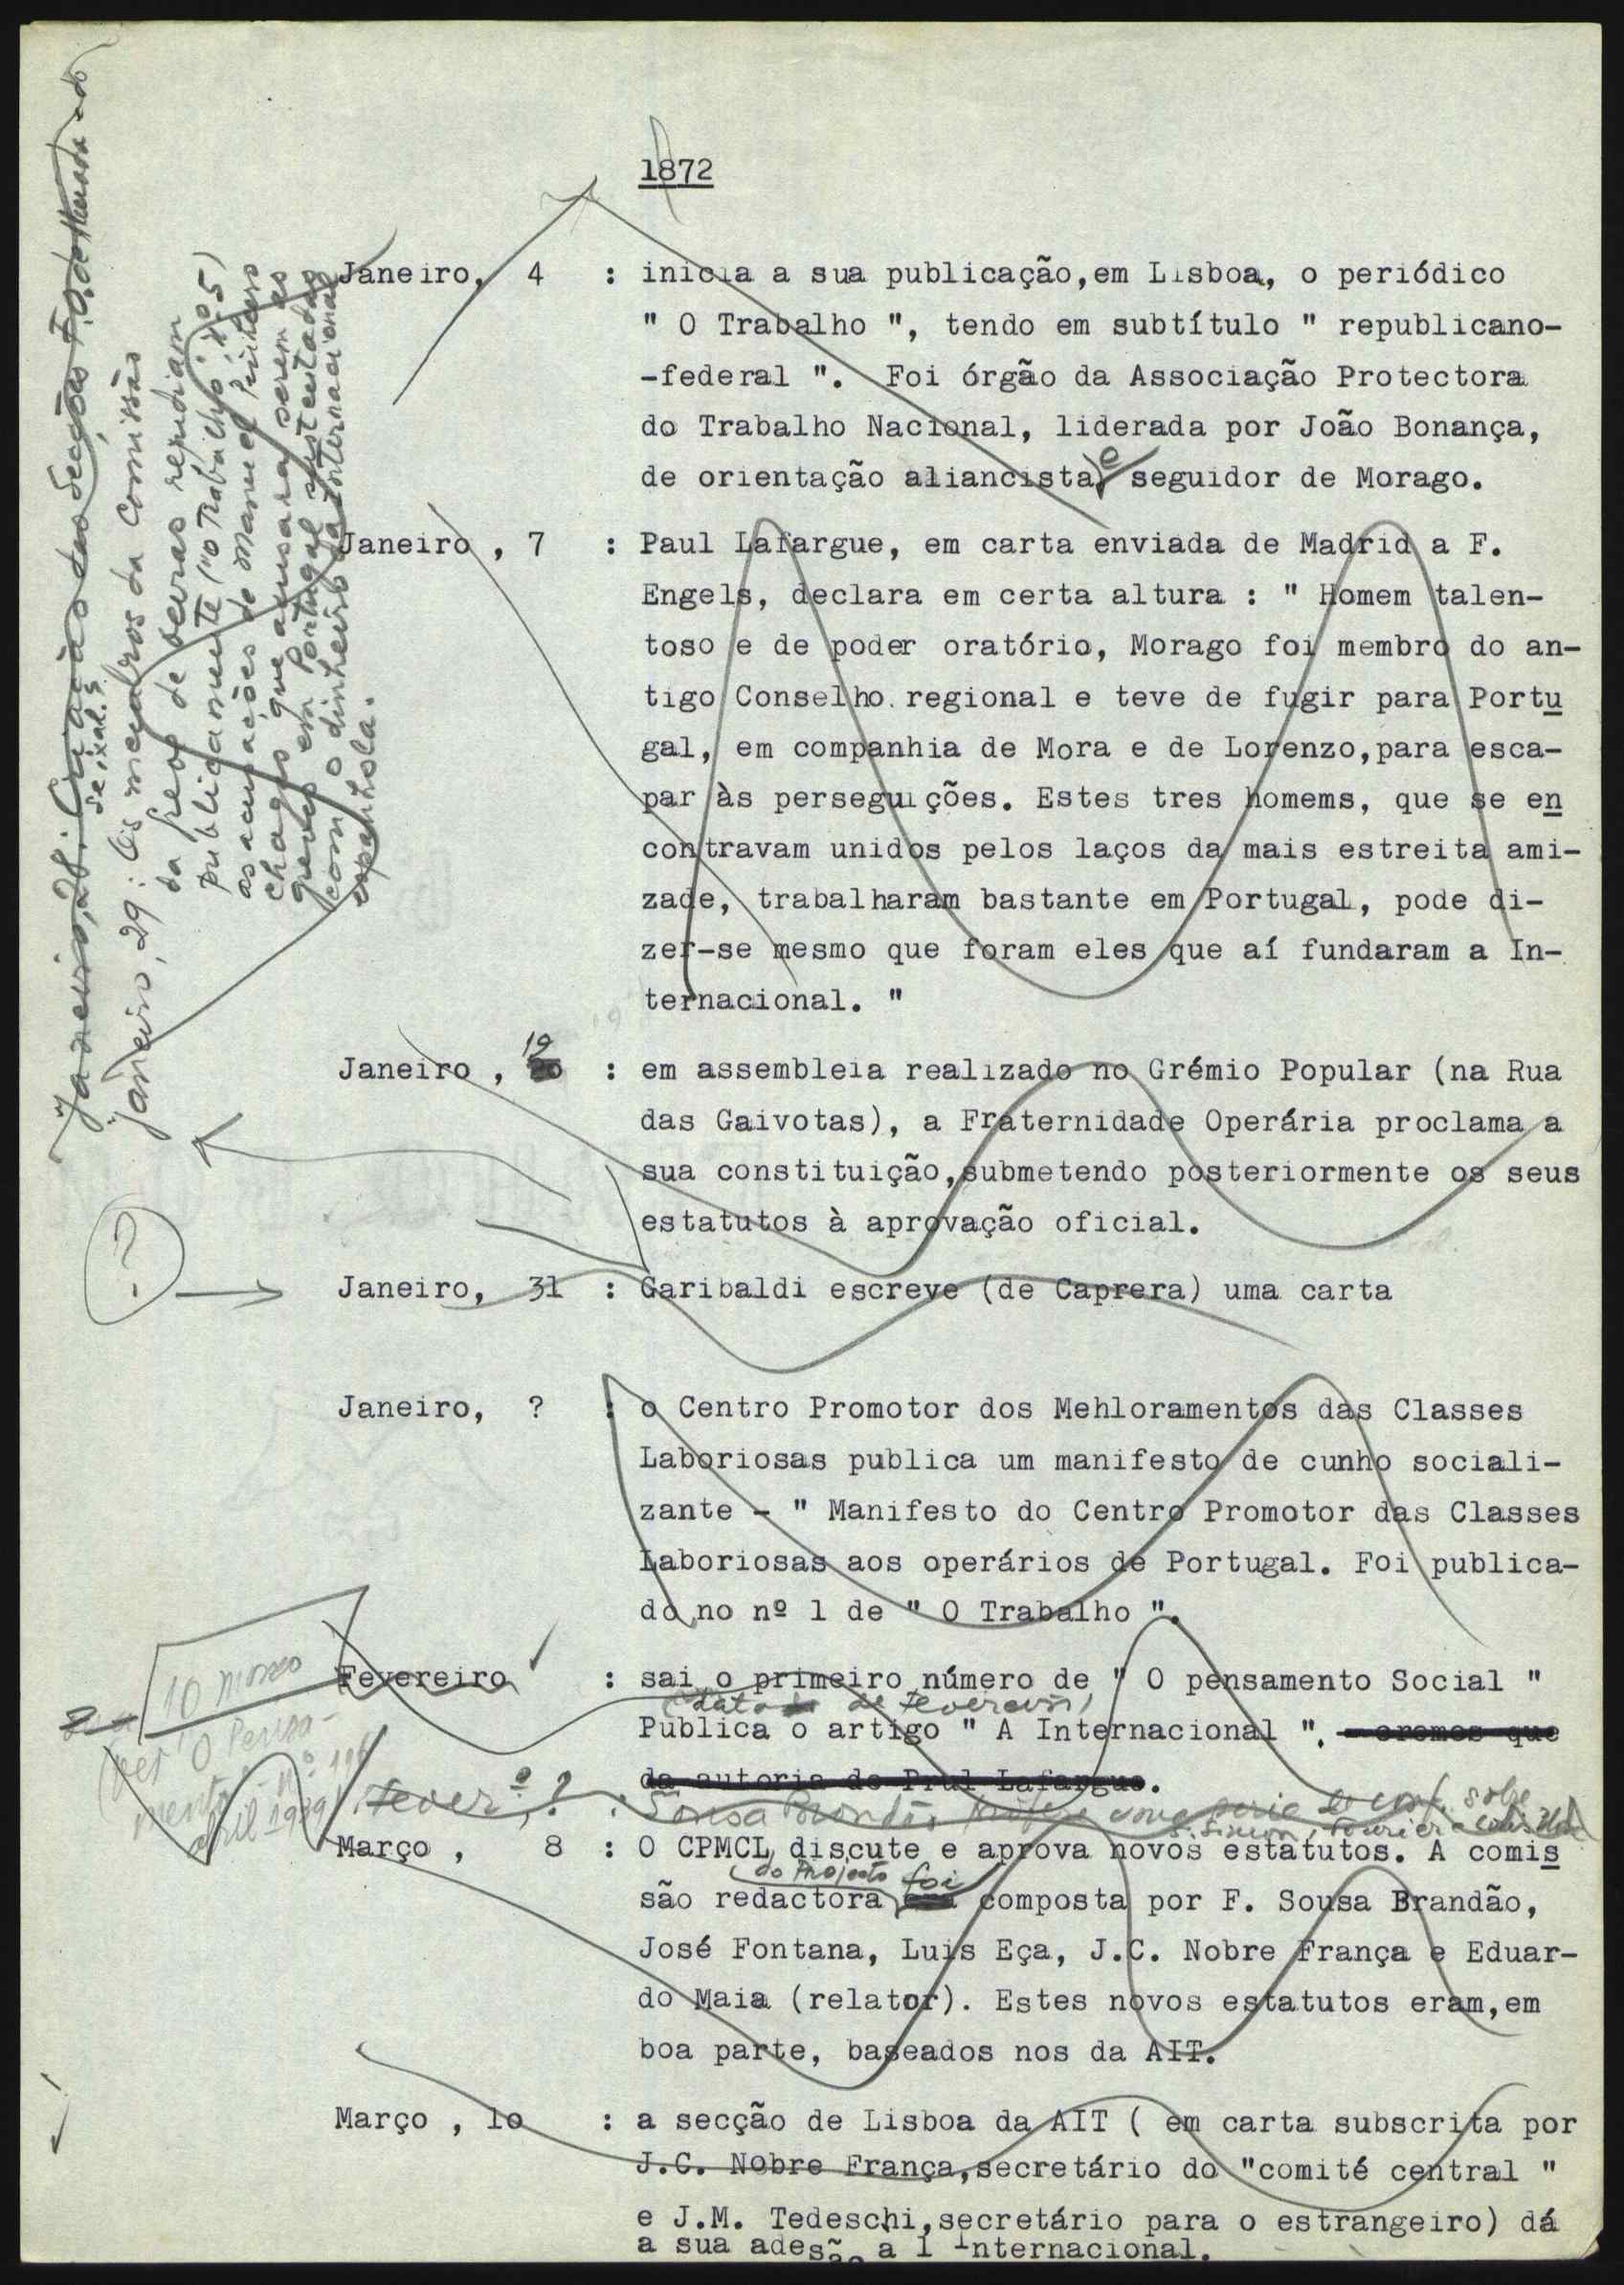 1872
Janeiro, 4 : inicia a sua publicação,em Lisboa, o periódico
" O Trabalho ", tendo em subtítulo " republicano-
-federal ". Foi órgão da Associação Protectora
do Trabalho Nacional, liderada por João Bonança,
de orientação aliancista e seguidor de Morago.
Janeiro , 7 : Paul Lafargue, em carta enviada de Madrid a F.
Engels, declara em certa altura : " Homem talen-
toso e de poder oratório, Morago foi membro do an-
tigo Conselho regional e teve de fugir para Portu
gal, em companhia de Mora e de Lorenzo,para esca-
par às perseguições. Estes tres homems, que se en
contravam unidos pelos laços da mais estreita ami-
zade, trabalharam bastante em Portugal, pode di-
zer-se mesmo que foram eles que aí fundaram a In-
ternacional. "
Janeiro , 19 : em assembleia realizado no Grémio Popular (na Rua
das Gaivotas), a Fraternidade Operária proclama a
sua constituição,submetendo posteriormente os seus
estatutos à aprovação oficial.
?
Janeiro, 31 : Garibaldi escreve (de Caprera) uma carta
Janeiro, ? : o Centro Promotor dos Mehloramentos das Classes
Laboriosas publica um manifesto de cunho sociali-
zante - " Manifesto do Centro Promotor das Classes
Laboriosas aos operários de Portugal. Foi publica-
do no nº 1 de " O Trabalho ".
Fevereiro : sai o primeiro número de " O pensamento Social "
(data de Fevereiro)
Publica o artigo " A Internacional ". cremos que
da autoria de Paul Lafargue.
10 março
(ver "O Pensa-
mento"
abril-1939)
Feverº ? : Sousa Brandão uma serie de conf. sobre
S. Simon, Fourier e
Março , 8 : O CPMCL discute e aprova novos estatutos. A comis
do Projecto foi
são redactora composta por F. Sousa Brandão,
José Fontana, Luis Eça, J.C. Nobre França e Eduar-
do Maia (relator). Estes novos estatutos eram,em
boa parte, baseados nos da AIT.
Março , 1o : a secção de Lisboa da AIT ( em carta subscrita por
J.C. Nobre França,secretário do "comité central "
e J.M. Tedeschi,secretário para o estrangeiro) dá
a sua adesão a 1 Internacional.
Janeiro, 28: Criação das Secções F.O. de Almada e do
Seixal.
Janeiro, 29: Os membros da Comissão
da greve de Oeiras repudiam
publicamente ("O Trabalho", nº 5)
as acusações de Manuel Pinheiro
Chagas que acusara serem as
greves em Portugal sustentadas
com o dinheiro da Internacional
espanhola.